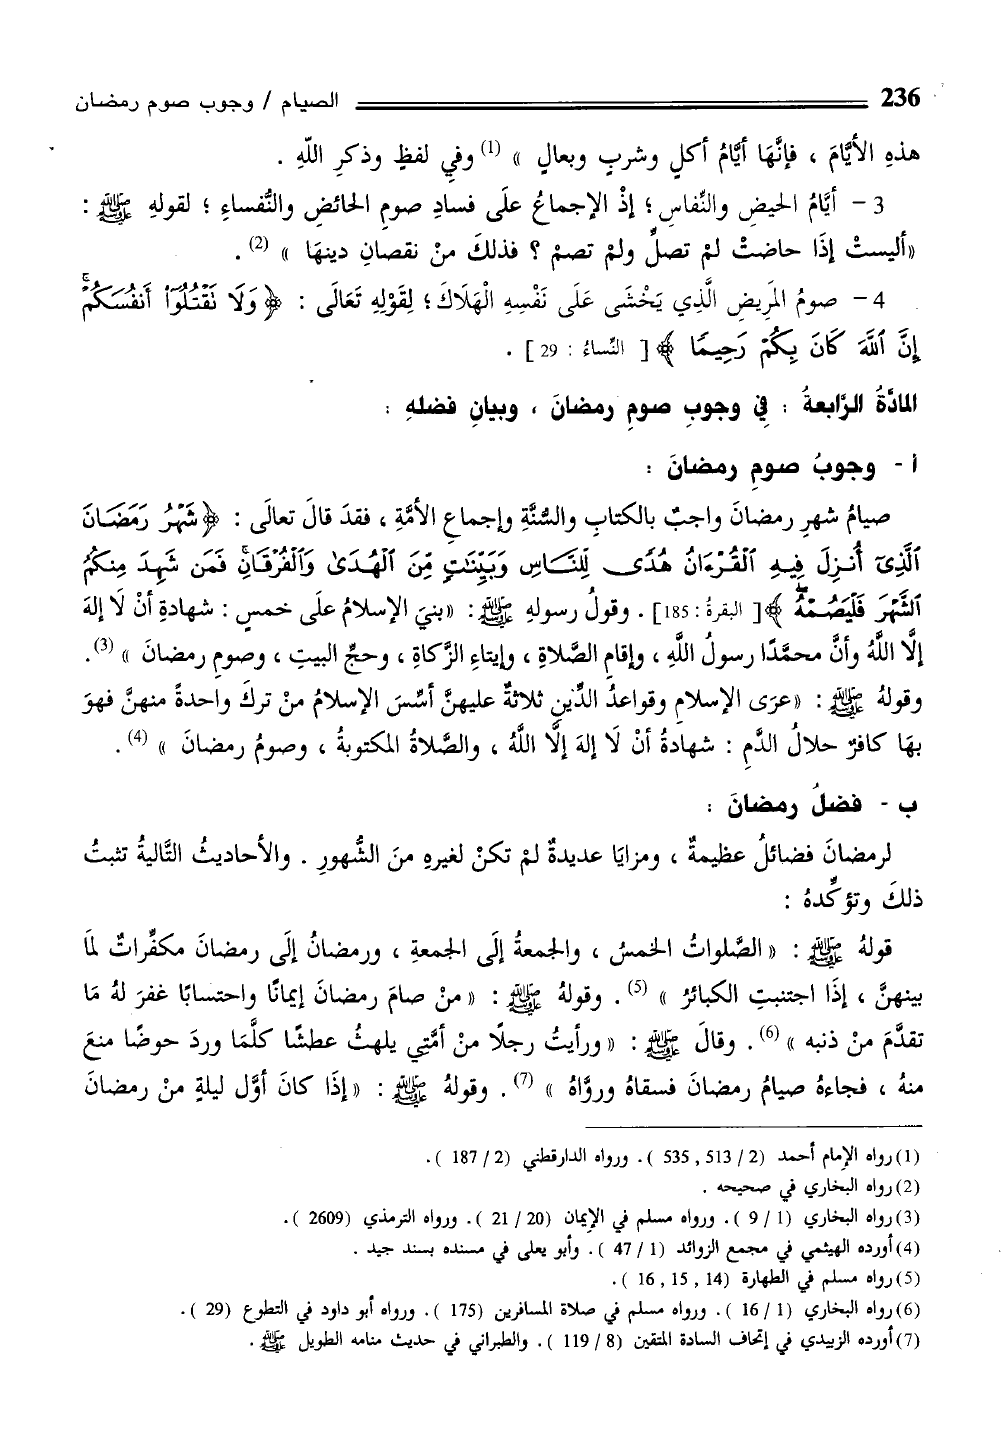 236 الصيام / وجوب صوم رمضان
هذهِ الأيَّامَ ، فإنَّهَا أيَّامُ أكلٍ وشربٍ وبعالٍ » (1) وفي لفظٍ وذكرِ اللَّهِ .
3 - أيَّامُ الحيضِ والنِّفاسِ ؛ إذْ الإجماعُ علَى فسادِ صومِ الحائضِ والنُّفساءِ ؛ لقولهِ ﷺ :
«أليستْ إذَا حاضتْ لمْ تصلِّ ولمْ تصمْ ؟ فذلكَ منْ نقصانِ دينهَا » (2) .
4 - صومُ المَرِيضِ الَّذِي يَخْشَى عَلَى نَفْسِهِ الْهَلَاكَ ؛ لِقَوْلِهِ تَعَالَى : ﴿ وَلَا نَقْتُلُوٓا۟ أَنفُسَكُمْ ۚ
إِنَّ ٱللَّهَ كَانَ بِكُمْ رَحِيمًا ﴾ [ النِّساءُ : 29 ] .
المادَّةُ الرَّابعةُ : فِي وجوبِ صومِ رمضانَ ، وبيانِ فضلهِ :
أ - وجوبُ صومِ رمضانَ :
صيامُ شهرِ رمضانَ واجبٌ بالكتابِ والسُّنَّةِ وإجماعِ الأمَّةِ ، فقدَ قالَ تعالَى : ﴿ شَهْرُ رَمَضَانَ
ٱلَّذِىٓ أُنزِلَ فِيهِ ٱلْقُرْءَانُ هُدًى لِّلنَّاسِ وَبَيِّنَٰتٍ مِّنَ ٱلْهُدَىٰ وَٱلْفُرْقَانِ ۚ فَمَن شَهِدَ مِنكُمُ
ٱلشَّهْرَ فَلْيَصُمْهُ ۖ ﴾ [ البقرةُ : 185 ] . وقولُ رسولهِ ﷺ : «بنيَ الإسلامُ علَى خمسٍ : شهادةِ أنْ لَا إلهَ
إلَّا اللَّهُ وأنَّ محمَّدًا رسولُ اللَّهِ ، وإقامِ الصَّلاةِ ، وإيتاءِ الزَّكاةِ ، وحجِّ البيتِ ، وصومِ رمضانَ » (3) .
وقولهُ ﷺ : «عرَى الإسلامِ وقواعدُ الدِّينِ ثلاثةٌ عليهنَّ أسِّسَ الإسلامُ منْ تركَ واحدةً منهنَّ فهوَ
بهَا كافرٌ حلالُ الدَّمِ : شهادةُ أنْ لَا إلهَ إلَّا اللَّهُ ، والصَّلاةُ المكتوبةُ ، وصومُ رمضانَ » (4) .
ب - فضلُ رمضانَ :
لرمضانَ فضائلُ عظيمةٌ ، ومزايَا عديدةٌ لمْ تكنْ لغيرهِ منَ الشُّهورِ . والأحاديثُ التَّاليةُ تثبتُ
ذلكَ وتؤكِّدهُ :
قولهُ ﷺ : « الصَّلواتُ الخمسُ ، والجمعةُ إلَى الجمعةِ ، ورمضانُ إلَى رمضانَ مكفِّراتٌ لمَا
بينهنَّ ، إذَا اجتنبتِ الكبائرُ » (5) . وقولهُ ﷺ : « منْ صامَ رمضانَ إيمانًا واحتسابًا غفرَ لهُ مَا
تقدَّمَ منْ ذنبه » (6) . وقالَ ﷺ : « ورأيتُ رجلًا منْ أمَّتِي يلهثُ عطشًا كلَّمَا وردَ حوضًا منعَ
منهُ ، فجاءهُ صيامُ رمضانَ فسقاهُ وروَّاهُ » (7) . وقولهُ ﷺ : « إذَا كانَ أوَّل ليلةٍ منْ رمضانَ
(1) رواه الإمام أحمد (2 / 513 , 535 ). ورواه الدارقطني (2 / 187 ).
(2) رواه البخاري في صحيحه .
(3) رواه البخاري (1 / 9 ). ورواه مسلم في الإيمان (20 / 21 ). ورواه الترمذي (2609 ).
(4) أورده الهيثمي في مجمع الزوائد (1 / 47 ). وأبو يعلى في مسنده بسند جيد .
(5) رواه مسلم في الطهارة (14 , 15 , 16 ).
(6) رواه البخاري (1 / 16 ). ورواه مسلم في صلاة المسافرين (175 ). ورواه أبو داود في التطوع (29 ).
(7) أورده الزبيدي في إتحاف السادة المتقين (8 / 119 ). والطبراني في حديث منامه الطويل ﷺ .